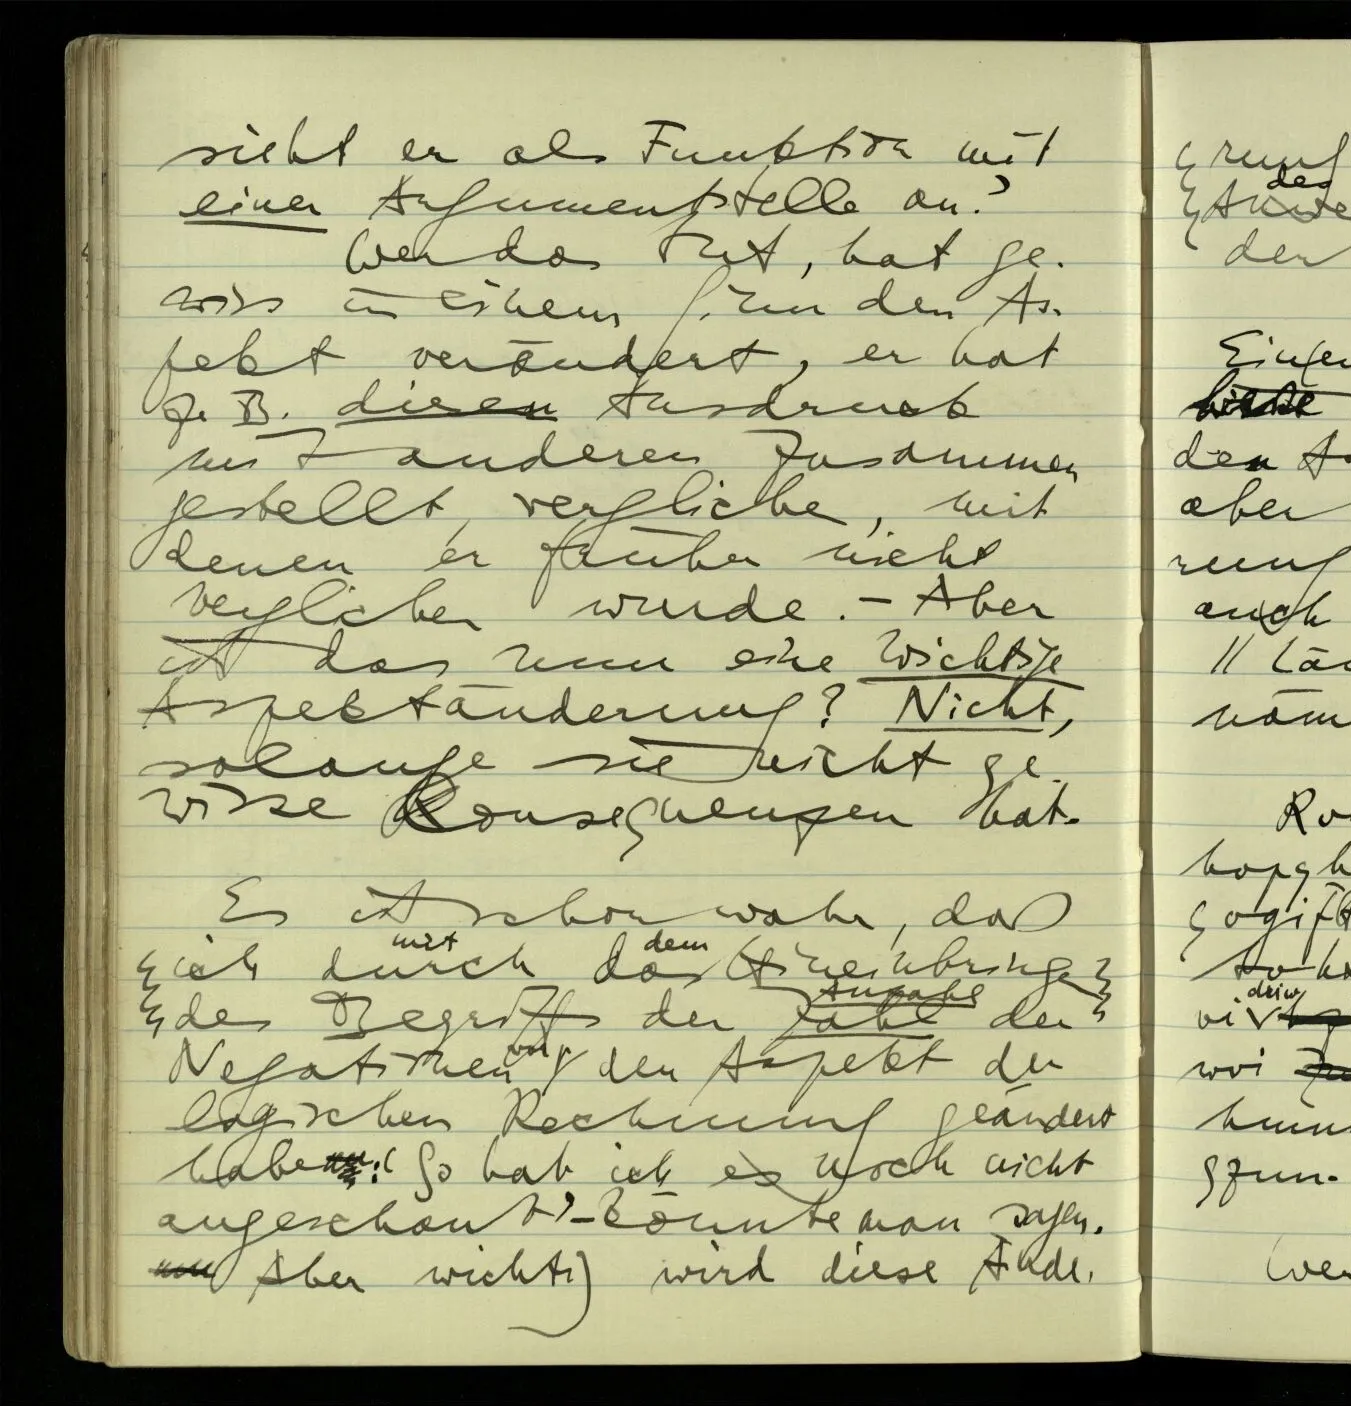 sieht er als Funktion mit
einer Argumentstelle an?
Wer das tut, hat ge-
wiss in einem Sinn den As-
pekt verändert, er hat
z. B. diesen Ausdruck
mit anderen zusammen
gestellt, vergliche, mit
denen er früher nicht
verglichen wurde. – Aber
ist das nun eine wichtige
Aspektänderung? Nicht,
solange sie nicht ge-
wisse Konsequenzen hat.
Es ist schon wahr, daß
mit dem
ich durch das Hineinbringen
des Begriffs der Zahl der
Negationen den Aspekt der
logischen Rechnung geändert
habe: ‘So hab ich es noch nicht
angeschaut’ – könnte man sagen.
Aber wichtig wird diese Ände-
rung
des
der
den
aber
rung
auch